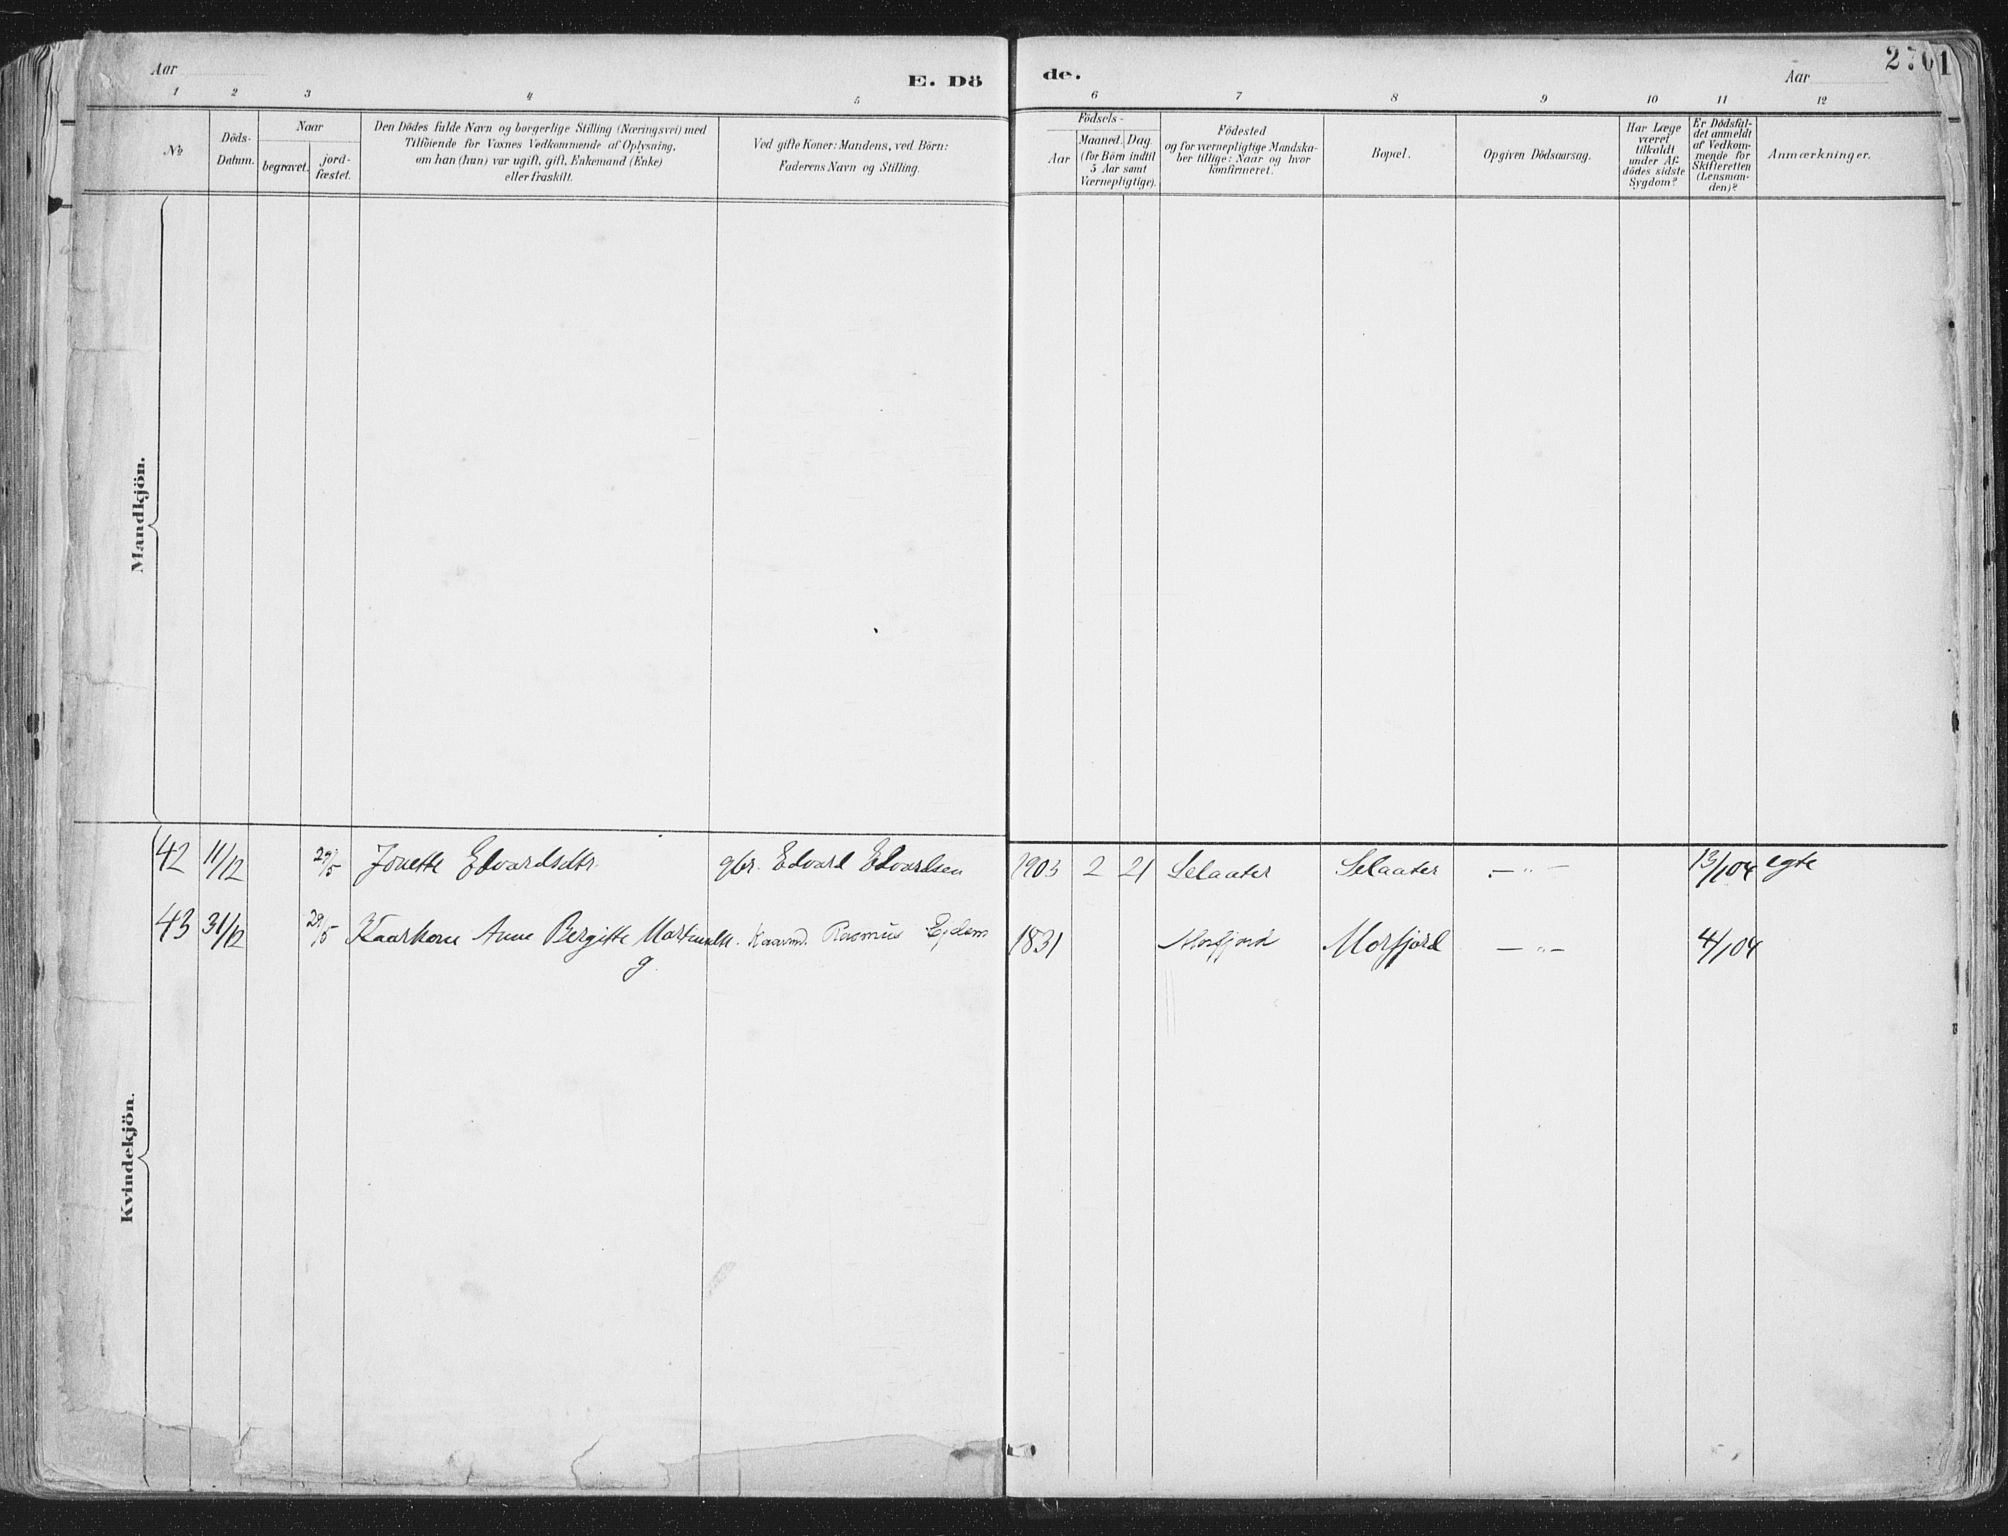 Aar
E. Dö
de.
Aar
2701
1
2
3
4
5
6
7
8
9
10
11
12
No
Döds-
Datum.
Naar
begravet.
jord-
fæstet.
Den Dödes fulde Navn og borgerlige Stilling (Næringsvei) med
Tilföiende for Voxnes Vedkommende af Oplysning,
om han (hun) var ugift, gift, Enkemand (Enke)
eller fraskilt.
Ved gifte Koner: Mandens, ved Börn:
Faderens Navn og Stilling.
Födsels-
Aar
Maaned.
Dag
(for Börn indtil
5 Aar samt
Værnepligtige).
Födested
og for værnepligtige Mandska-
ber tillige: Naar og hvor
konfirmeret.
Bopæl.
Opgiven Dödsaarsag.
Har Læge
været
tilkaldt
under Af-
dödes sidste
Sygdom?
Er Dödsfal-
det anmeldt
af Vedkom-
mende for
Skifteretten
(Lensman-
den)?
Anmærkninger.
Mandkjön.
42 11/12 29/5 Jonette Edvardsdtr. gbr. Edvard Edvardsen 1903 2 21 Selaater Selaater — " — 13/1 04 egte
43 31/12 29/5 Kaarkone Anne Bergitte Kaarmd. Rasmus 1831 Morfjord Morfjord — " — 4/1 04
g.
Kvindekjön.